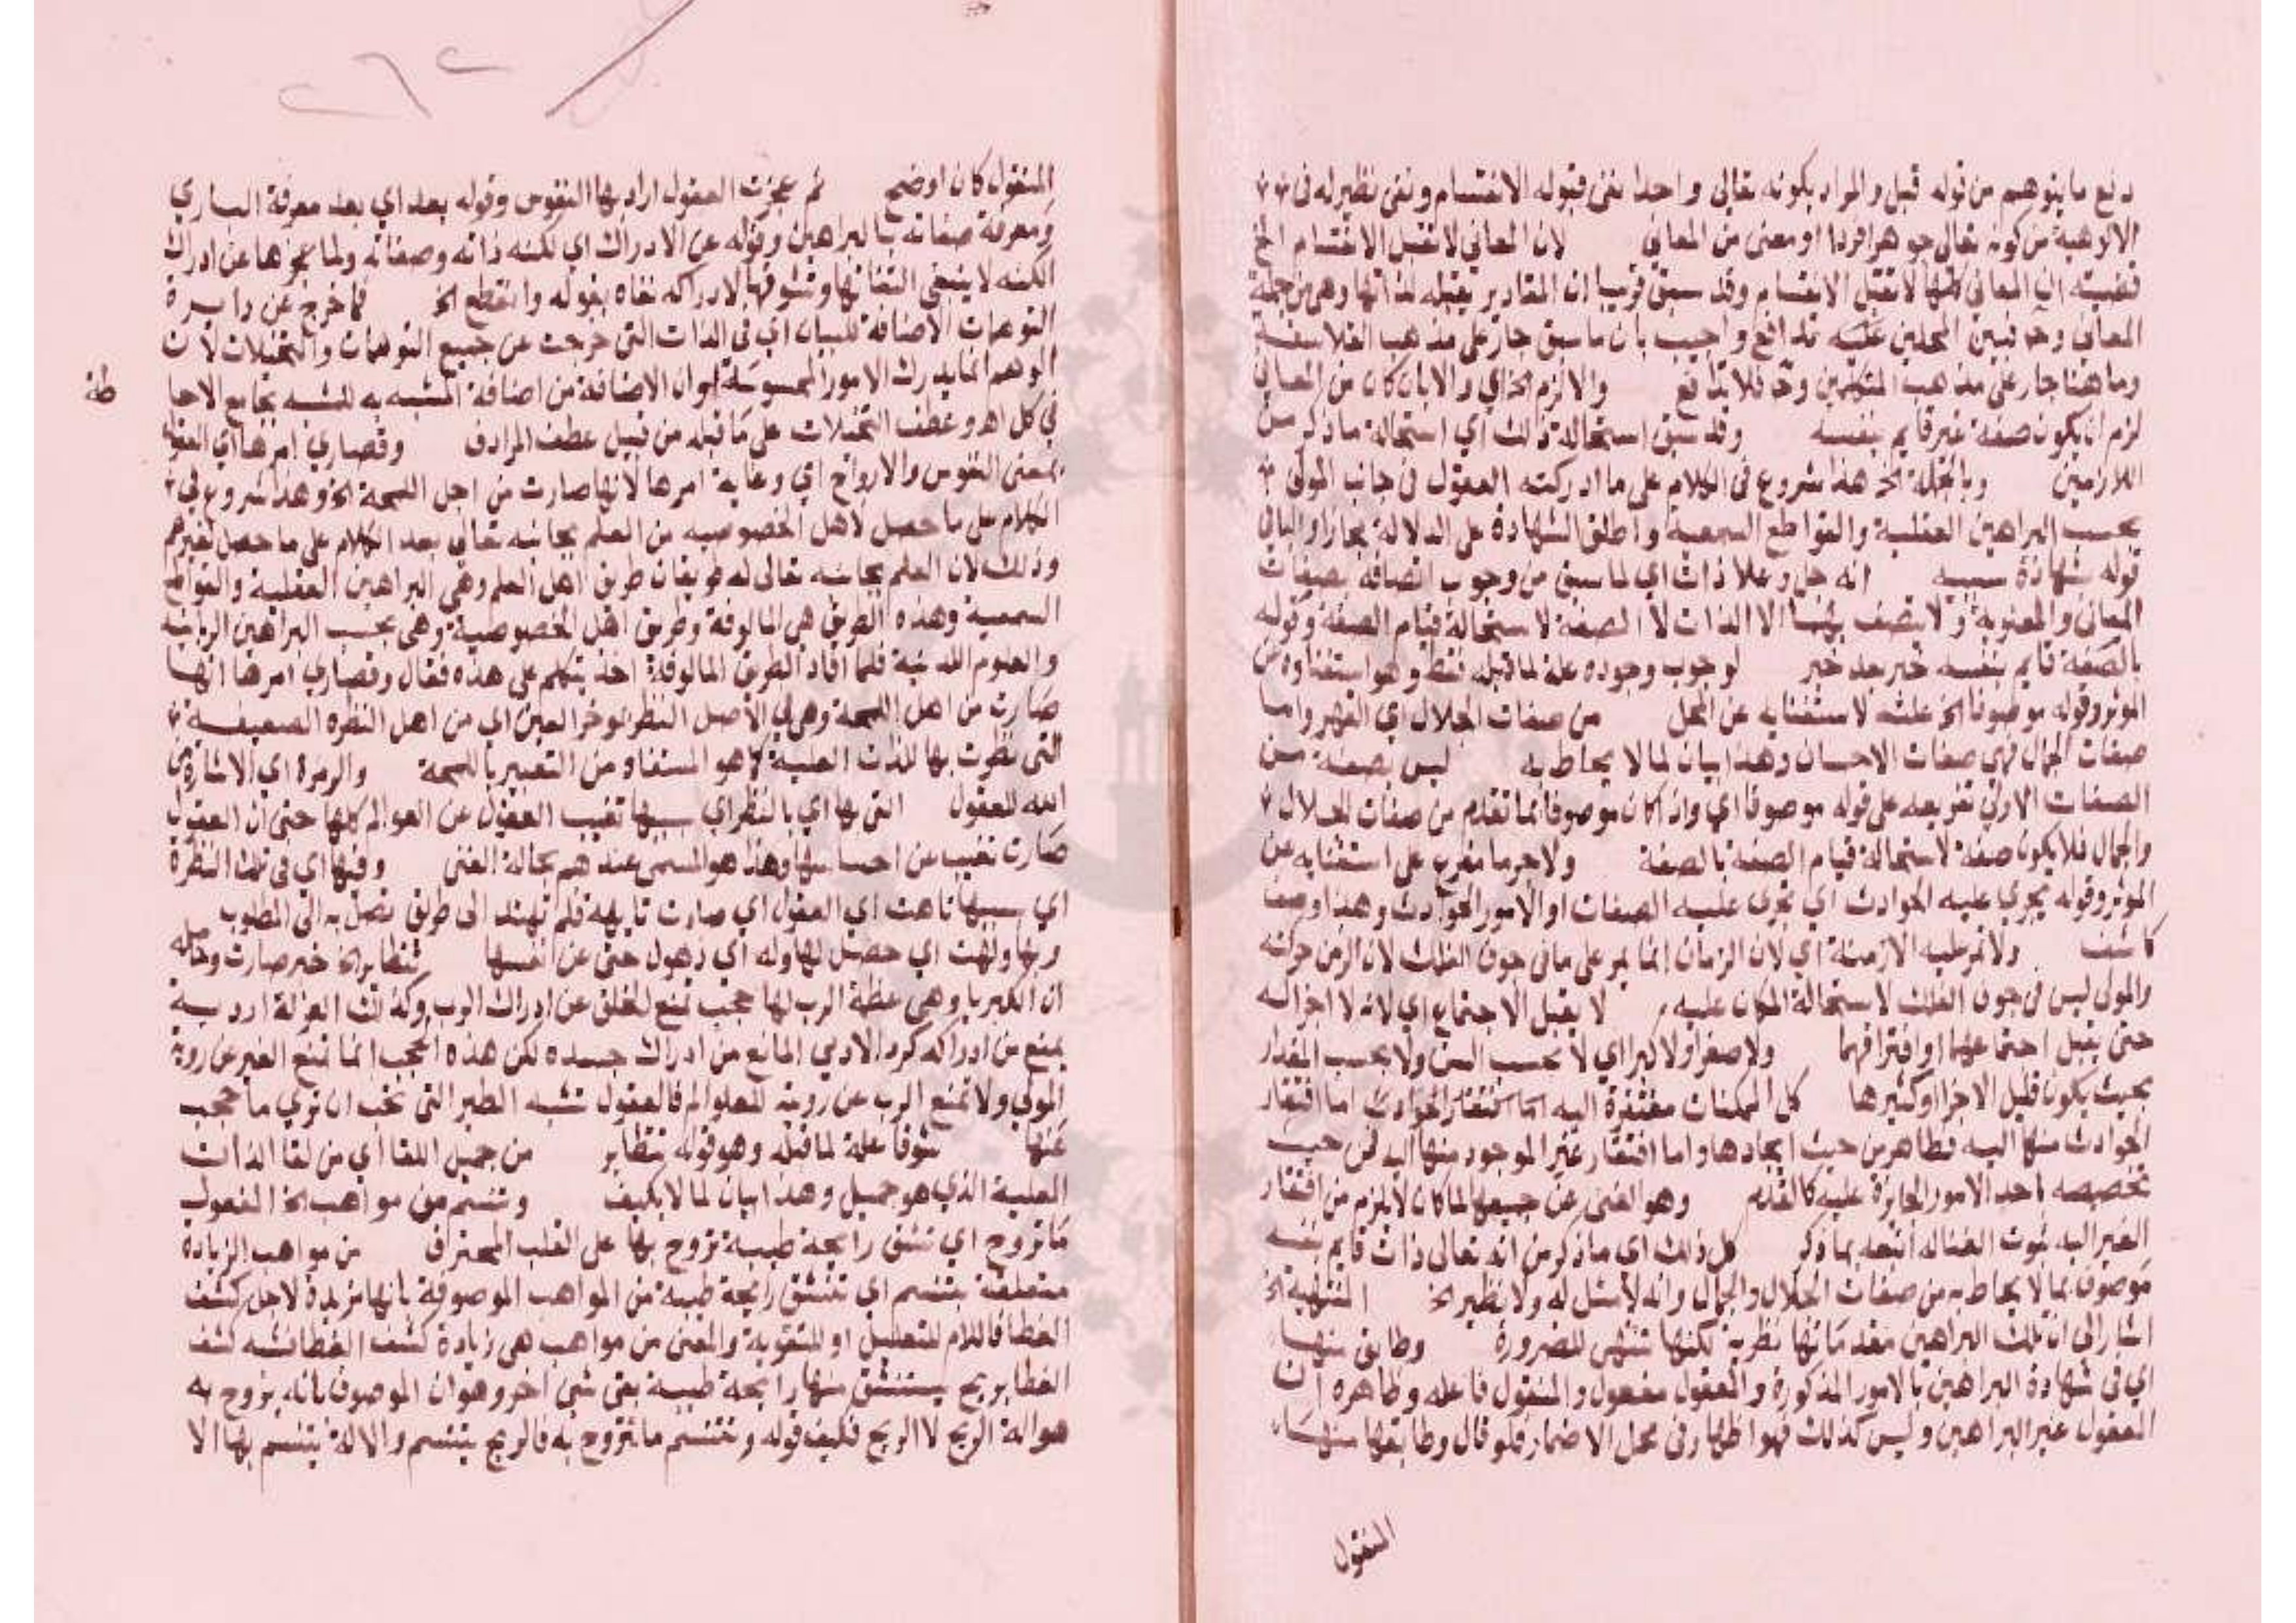 دفع ما يتوهم من قوله قبل والمراد بكونه تعالى واحدا نفى قبوله الانقسام ونفى نظير له فى
الالوهية من كونه تعالى جوهرا فردا او معنى من المعاني لان المعاني لا تقبل الانقسام الخ
قضيته ان المعاني كلها لا تقبل الانقسام وقد سبق قريبا ان المقادير يقبله لذاتها وهي من جملة
المعاني وح فبين المحلين عليه تدافع واجيب بان ما سبق جار على مذهب الفلاسفة
وما هنا جار على مذهب المتكلمين وح فلا تدافع والا لزم الخ اي والا بان كان من المعاني
لزم ان يكون صفة غير قايم بنفسه وقد سبق استحالة ذلك اي استحالة ما ذكر من
اللازمين وبالجملة الخ هذا شروع فى الكلام على ما ادركته العقول فى جانب المولى
بحسب البراهين العقلية والقواطع السمعية واطلق الشهادة على الدلالة مجازا والبا في
قوله بشهادة سببية انه جل وعلا ذات اي لما سبق من وجوب اتصافه بصفات
المعاني والمعنوية ولا يتصف بهما الا الذات لا الصفة لاستحالة قيام الصفة وقوله
بالصفة قايم بنفسه خبر بعد خبر لوجوب وجوده علة لما قبله فقط وهو استغناوه عن
الموثر وقوله موصوفا الخ علته لاستغنايه عن المحل من صفات الجلال اي القهر واما
صفات الجمال فهي صفات الاحسان وهذا بيان لما لا يحاط به ليس بصفة من
الصفات الاولى تفريعه على قوله موصوفا اي واذا كان موصوفا بما تقدم من صفات الجلال
والجمال فلا يكون صفة لاستحالة قيام الصفة بالصفة ولا جرما مفرع على استغنايه عن
الموثر وقوله تجري عليه الحوادث اي تجرى عليه الصفات او الامور الحوادث وهذا وصف
كاشف ولا تمر عليه الازمنة اي لان الزمان انما يمر على ما فى جوف الفلك لان الزمن حركته
والمولى ليس فى جوف الفلك لاستحالة المكان عليه لا يقبل الاجتماع اي لانه لا اجزا له
حتى يقبل اجتماعها او افتراقها ولا صغر ولا كبر اي لا بحسب السن ولا بحسب المقدار
بحيث يكون قليل الاجزا او كثيرها كل الممكنات مفتقرة اليه اما افتقار الحوادث اما افتقار
الحوادث منها اليه فظاهر من حيث ايجادها واما افتقار غير الموجود منها اليه فمن حيث
تخصيصه باحد الامور الجايزة عليه كالعدم وهو الغنى عن جميعها لما كان لا يلزم من افتقار
الغير اليه ثبوت الغنا له اتبعه بما ذكر كل ذلك اي ما ذكر من انه تعالى ذات قايم بنفسه
موصوف بما لا يحاط به من صفات الجلال والجمال وانه لا مثل له ولا نظير الخ المنتهية الخ
اشار الى ان تلك البراهين مقدماتها نظرية لكنها تنتهي للضرورة وطابق منها
اي فى شهادة البراهين بالامور المذكورة والمعقول مفعول والمنقول فاعله وظاهره ان
المعقول غير البراهين وليس كذلك فهو اظهار فى محل الاضمار فلو قال وطابقها منها
المنقول
المنقول كان اوضح ثم عجزت العقول اراد بها النفوس وقوله بعد اي بعد معرفة الباري
ومعرفة صفاته بالبراهين وقوله عن الادراك اي لكنه ذاته وصفاته ولما عجزها عن ادراك
الكنه لا ينفى التفاتها وتشوفها لادراكه نفاه بقوله وانقطع الخ فما خرج عن دايرة
التوهمات الاضافة للبيان اي فى الذات التي خرجت عن جميع التوهمات والتخيلات لان
الوهم انما يدرك الامور المحسوسة او ان الاضافة من اضافة المشبه به للمشبه بجامع الاحا
طة
في كل اه وعطف التخيلات على ما قبله من قبيل عطف المرادف وقصاري امرها اي العقول
بمعنى النفوس والارواح اي وغاية امرها لانها صارت من اجل اللمحة الخ وهذا شروع في
الكلام على ما حصل لاهل الخصوصيه من العلم بجانبه تعالى بعد الكلام على ما حصل لغيرهم
وذلك لان العلم بجانبه تعالى له طريقان طريق اهل العلم وهي البراهين العقلية والقواطع
السمعية وهذه الطريق هي المالوفة وطريق اهل الخصوصية وهي بحسب البراهين الربانيه
والعلوم اللدنية فلما افاد الطريق المالوفة اخذ يتكلم على هذه فقال وقصاري امرها انها
صارت من اهل اللمحة وهي فى الاصل النظر بموخر العين اي من اهل النظره الضعيفة
التى نظرت بها للذات العلية كما هو المستفاد من التعبير باللمحة والرمزة اي الاشارة من
الله للعقول التى بها اي بالنظر اي بسببها تغيب العقول عن العوالم كلها حتى ان العقول
صارت تغيب عن احساسها وهذا هو المسمى عندهم بحالة الفنى وفيها اي فى تلك النظرة
اي بسببها تاهت اي العقول اي صارت تايهه فلم تهتد الى طريق تصل به الى المطلوب
وبها ولهت اي حصل لها وله اي ذهول حتى عن انفسها تتطاير الخ خبر صارت وحاصله
ان الكبريا وهي عظة الرب لها حجب تمنع الخلق عن ادراك الرب وكذلك العزلة اردية
يمنع من ادراكه كرد الادمي المانع من ادراك جسده لكن هذه الحجب انما تمنع الغير عن روية
المولى ولا تمنع الرب عن روية للعوالم فالعقول تشبه الطير التى تحب ان تري ما حجب
عنها تشوفا علة لما قبله وهو قوله تتطاير من جميل اللقا اي من لقا الذات
العلية الذي هو جميل وهذا بيان لما لا يكيف وتنسم من مواهب الخ المفعول
ما تروح اي تنشق رايحة طيبة تروح بها على القلب المحترق من مواهب الزيادة
متعلقة بتنسم اي تنشق رايحة طيبه من المواهب الموصوفة بانها مزيدة لاجل كشف
الغطا فاللام للتعليل او للتقوية والمعنى من مواهب هي زيادة كشف الغطا شبه كشف
الغطا بريح يستنشق منها رايحة طيبة بقى شي اخر وهو ان الموصوف بانه يروح به
هو الة الريح لا الريح فكيف قوله وتنسم ما تروح به فالريح يتنسم والالة يتنسم بها الا